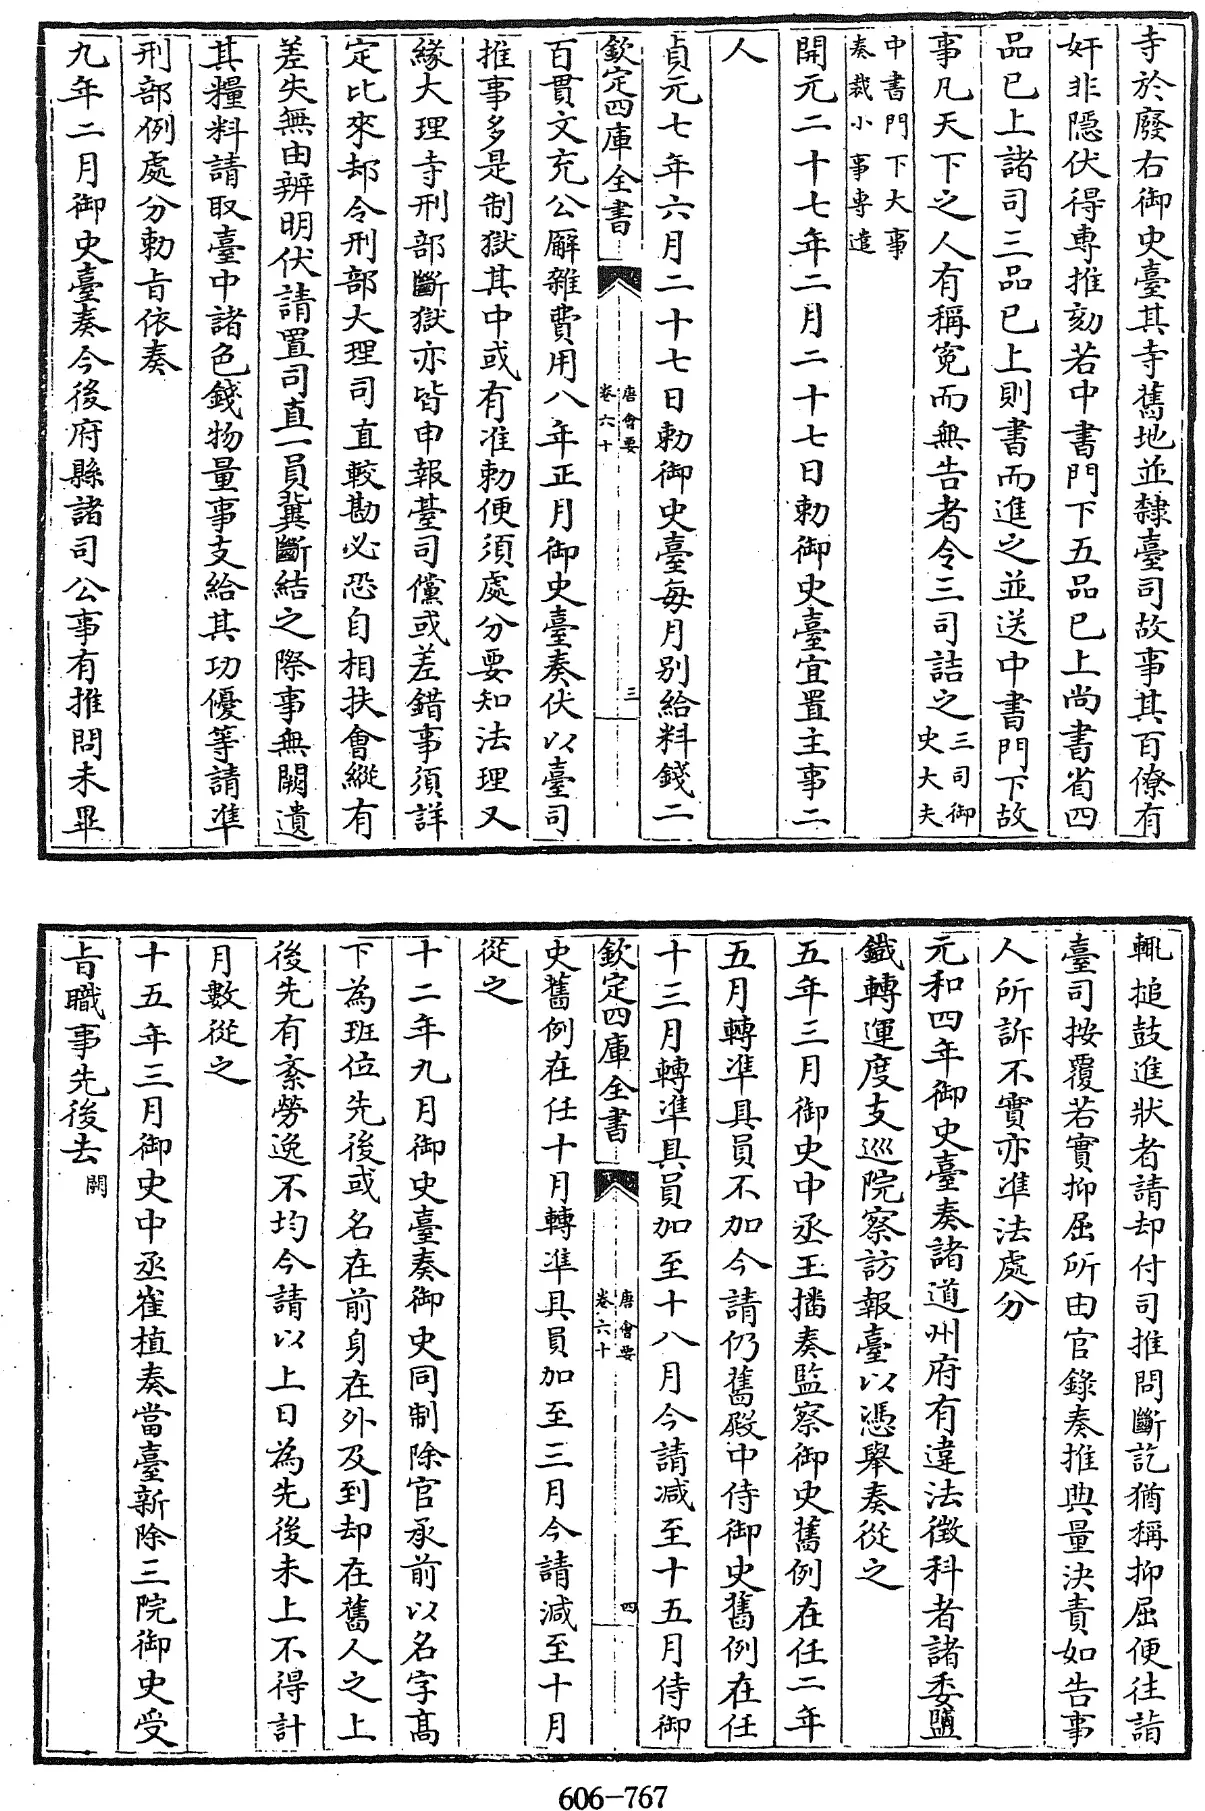 寺於廢右御史臺其寺舊地並隸臺司故事其百僚有
奸非隱伏得專推劾若中書門下五品已上尚書省四
品已上諸司三品已上則書而進之並送中書門下故
事凡天下之人有稱寃而無告者令三司詰之三司御史大夫
中書門下大事奏裁小事專達
開元二十七年二月二十七日勅御史臺宜置主事二
人
貞元七年六月二十七日勅御史臺每月别給料錢二
欽定四庫全書
唐會要
卷六十
三
百貫文充公廨雜費用八年正月御史臺奏伏以臺司
推事多是制獄其中或有准勅便須處分要知法理又
緣大理寺刑部斷獄亦皆申報臺司儻或差錯事須詳
定比來却令刑部大理司直較勘必恐自相扶會縱有
差失無由辨明伏請置司直一員冀斷結之際事無闕遺
其糧料請取臺中諸色錢物量事支給其功優等請準
刑部例處分勅旨依奏
九年二月御史臺奏今後府縣諸司公事有推問未畢
輒撾鼓進狀者請却付司推問斷訖猶稱抑屈便往詣
臺司按覆若實抑屈所由官錄奏推典量決責如告事
人所訴不實亦準法處分
元和四年御史臺奏諸道州府有違法徵科者諸委鹽
鐵轉運度支巡院察訪報臺以憑舉奏從之
五年三月御史中丞王播奏監察御史舊例在任二年
五月轉準具員不加今請仍舊殿中侍御史舊例在任
十三月轉準具員加至十八月今請減至十五月侍御
欽定四庫全書
唐會要
卷六十
四
史舊例在任十月轉準具員加至三月今請減至十月
從之
十二年九月御史臺奏御史同制除官承前以名字高
下為班位先後或名在前身在外及到却在舊人之上
後先有紊勞逸不均今請以上日為先後未上不得計
月數從之
十五年三月御史中丞崔植奏當臺新除三院御史受
旨職事先後去闕
606-767